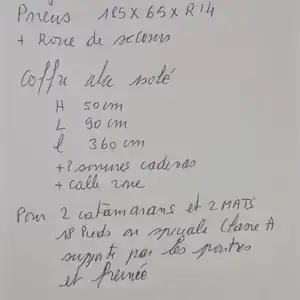 Pneus 185 X 65 X R 14
+ Roue de secours
Coffre alu isolé
H 50 cm
L 90 cm
l 360 cm
+ 2 serrures cadenas
+ calle roue
Pour 2 catamarans et 2 MATS
18 Pieds ou spéciale Classe A
supporté par les pontres
et freinée